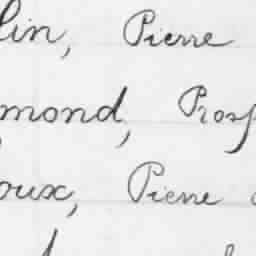 lin, Pierre
mond, Prosp
oux, Pierre